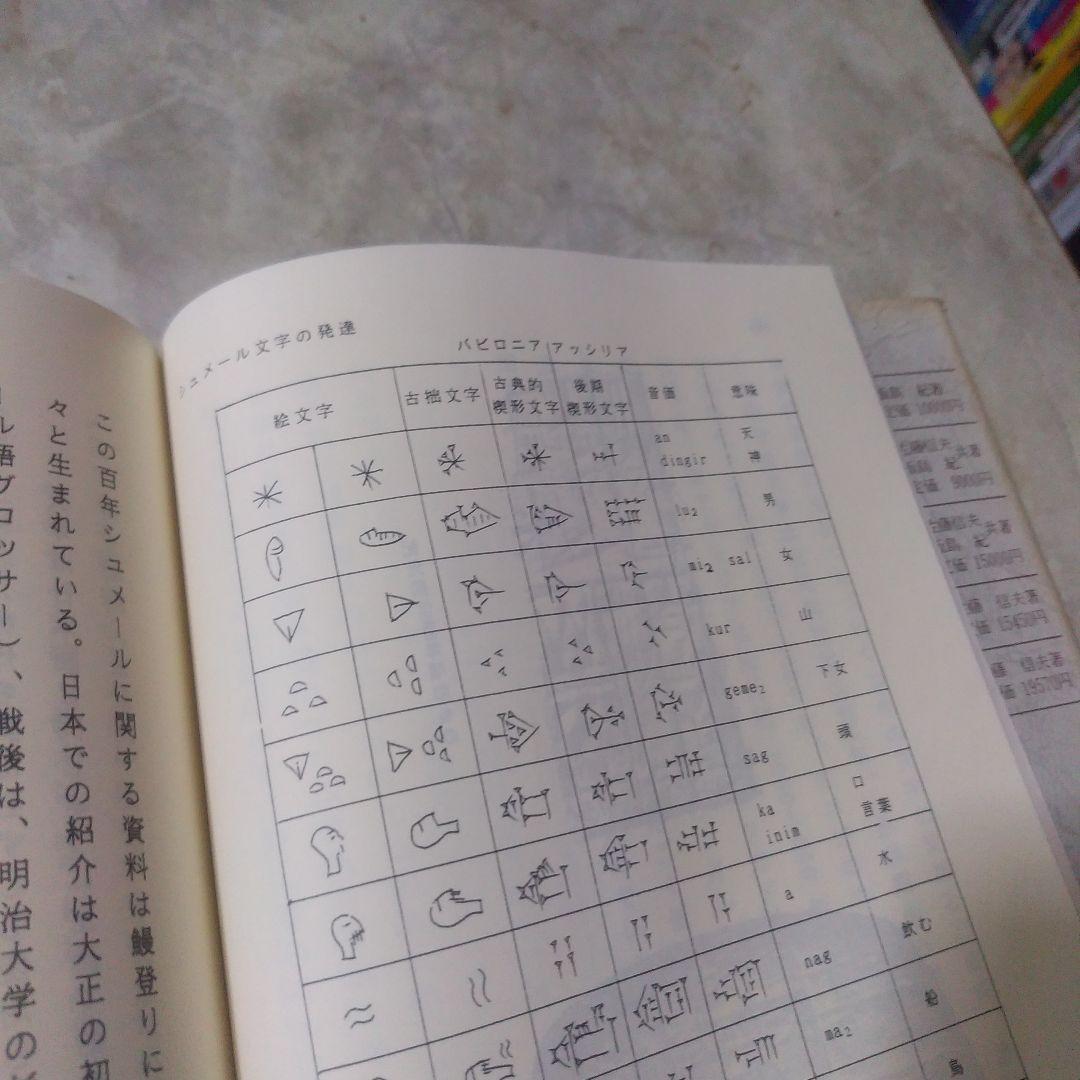 シュメール文字の発達
バビロニア アッシリア
絵文字 古拙文字 古典的楔形文字 後期楔形文字 音価 意味
an dingir 天 神
lu₂ 男
mi₂ sal 女
kur 山
geme₂ 下女
sag 頭
ka inim 口 言葉
a 水
nag 飲む
ma₂
鳥
この百年シュメールに関する資料は鰻登りに
々と生まれている。日本での紹介は大正の初
ル語グロッサリー）、戦後は、明治大学の
紀著
定価 10000円
信夫 共著
紀
定価 9000円
信夫 共著
紀
定価 15000円
信夫著
価 15450円
信夫著
価 19570円